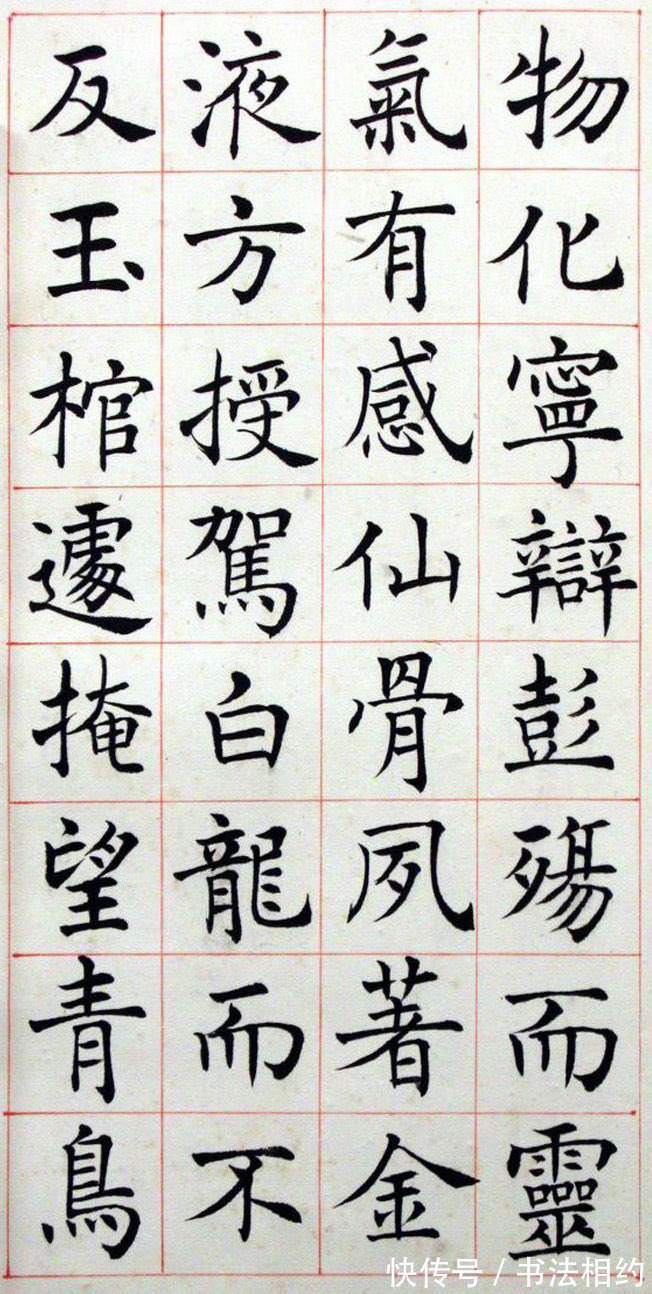 物化寧辯彭殤而靈
氣有感仙骨夙著金
液方授駕白龍而不
反玉棺遽掩望青鳥
快传号 / 书法相约